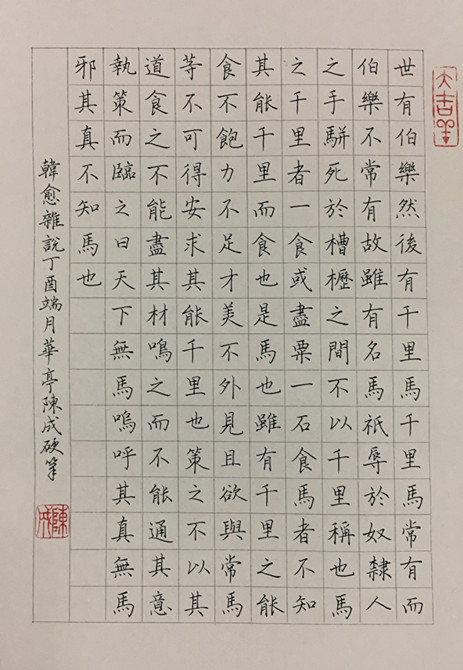 大吉羊
世有伯樂然後有千里馬千里馬常有而
伯樂不常有故雖有名馬祇辱於奴隸人
之手駢死於槽櫪之間不以千里稱也馬
之千里者一食或盡粟一石食馬者不知
其能千里而食也是馬也雖有千里之能
食不飽力不足才美不外見且欲與常馬
等不可得安求其能千里也策之不以其
道食之不能盡其材鳴之而不能通其意
執策而臨之曰天下無馬嗚呼其真無馬
邪其真不知馬也
韓愈雜說丁酉端月華亭陳成硬筆
陳成